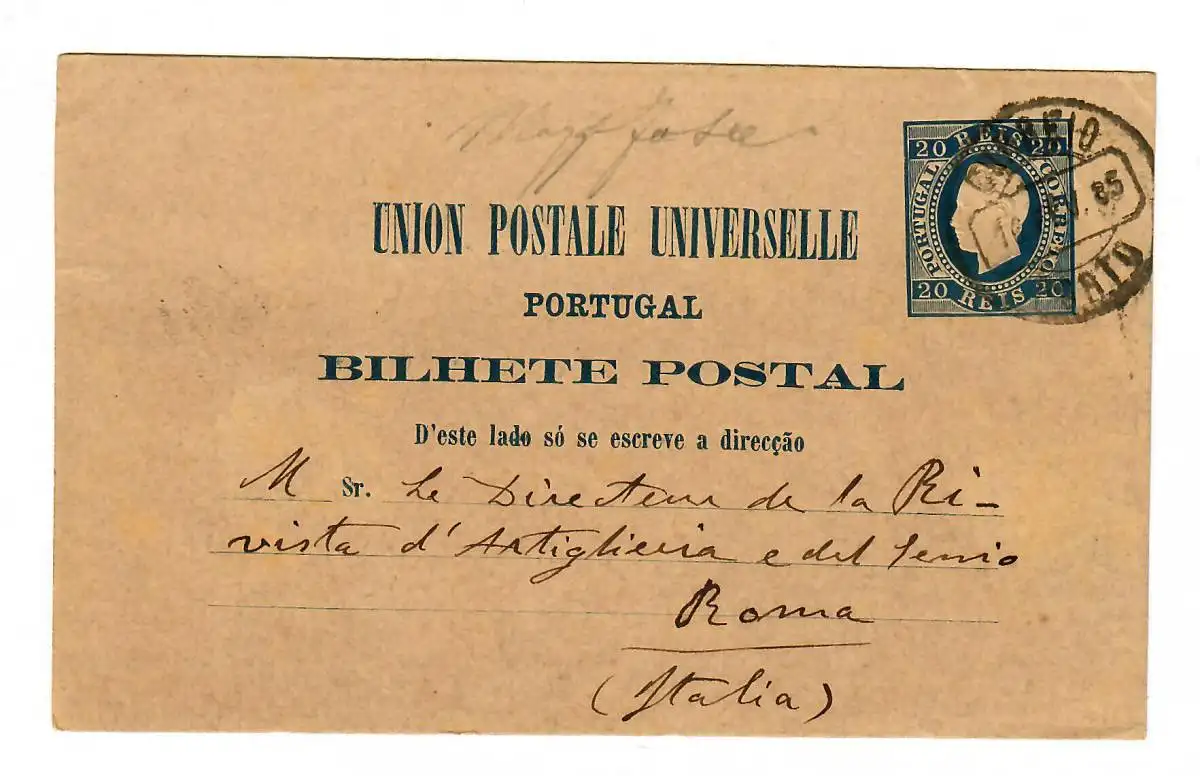 UNION POSTALE UNIVERSELLE
PORTUGAL
BILHETE POSTAL
D'este lado só se escreve a direcção
20 REIS 20
PORTUGAL
CORREIO
20 REIS 20
85
M Sr. Le Directeur de la Ri-
vista d'Artiglieria e del Genio
Roma
(Italia)